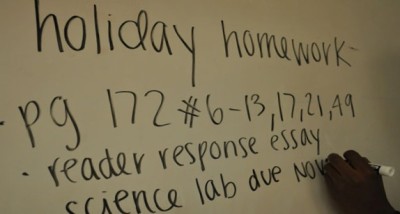 holiday homework-
· pg 172 #6-13,17,21,49
· reader response essay
science lab due Nov